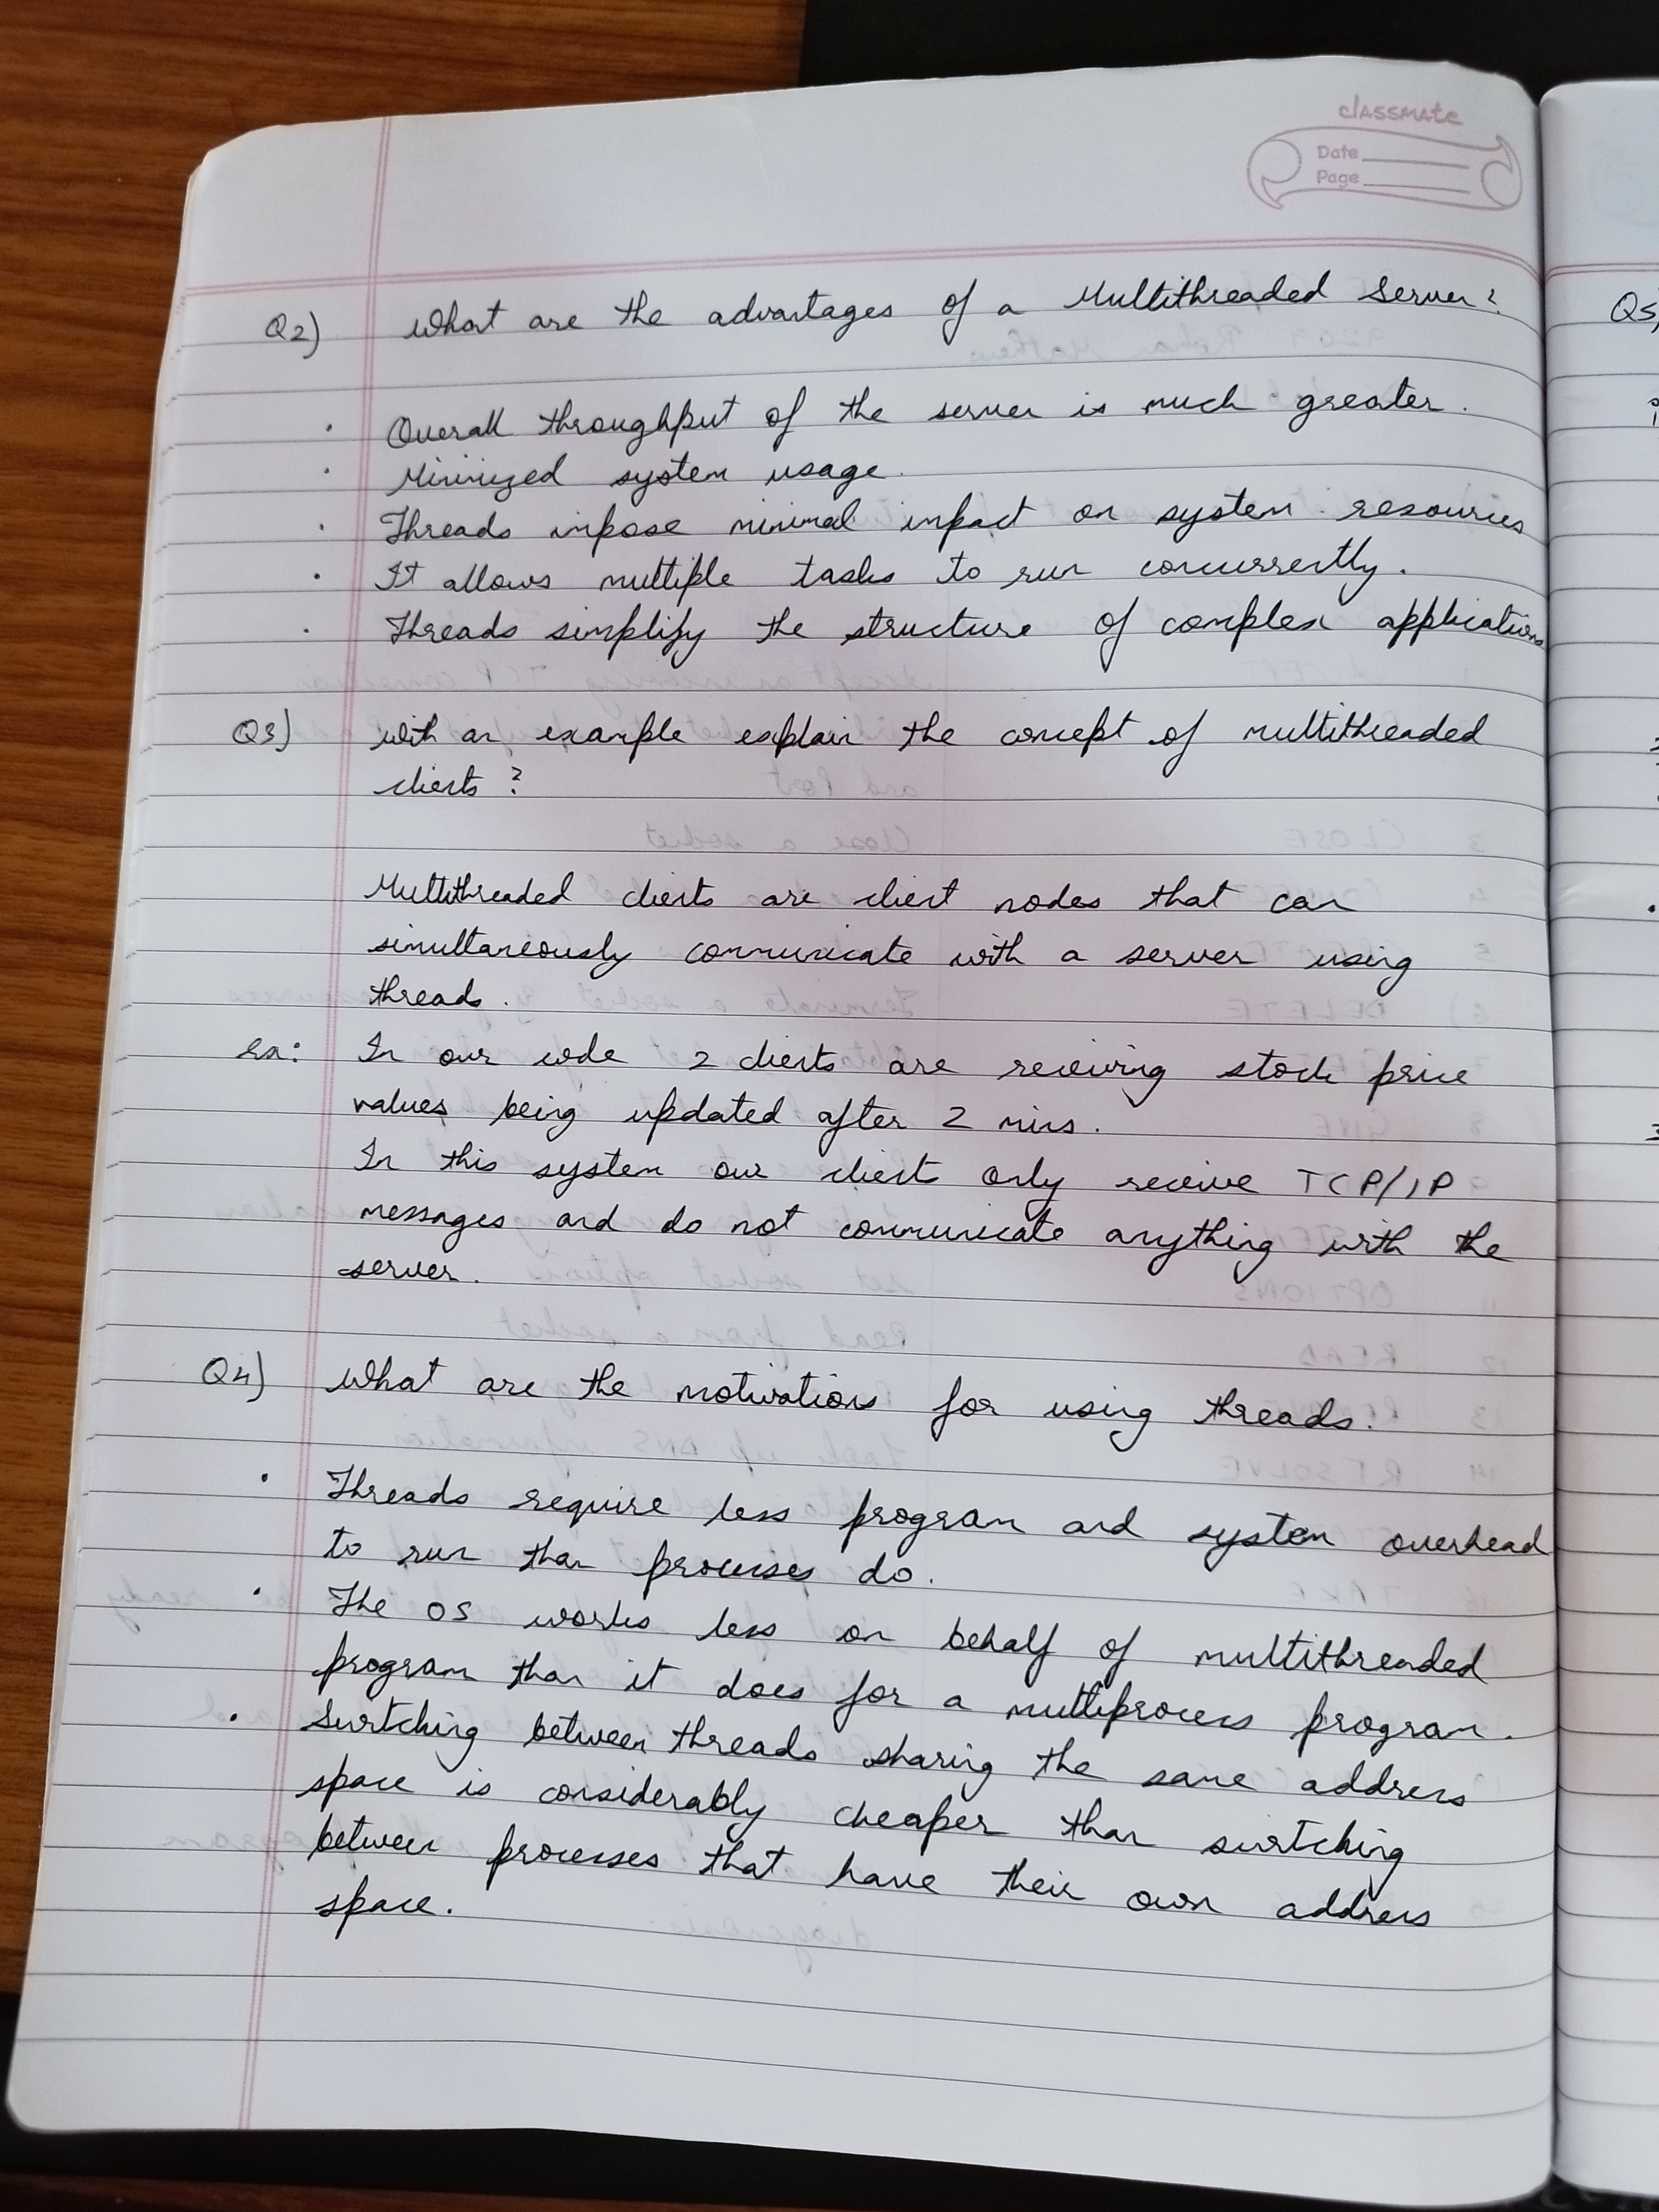 classmate
Date
Page
Q2) What are the advantages of a Multithreaded Server?
· Overall throughput of the server is much greater.
· Minimized system usage.
· Threads impose minimal impact on system resources
· It allows multiple tasks to run concurrently.
· Threads simplify the structure of complex applications
Q3) With an example explain the concept of multithreaded
clients ?
Multithreaded clients are client nodes that can
simultaneously communicate with a server using
threads.
ex: In our code 2 clients are receiving stock price
values being updated after 2 mins.
In this system our client only receive TCP/IP
messages and do not communicate anything with the
server.
Q4) What are the motivations for using threads.
· Threads require less program and system overhead
to run than processes do.
· The OS works less on behalf of multithreaded
program than it does for a multiprocess program.
· Switching between threads sharing the same address
space is considerably cheaper than switching
between processes that have their own address
space.
Q5)